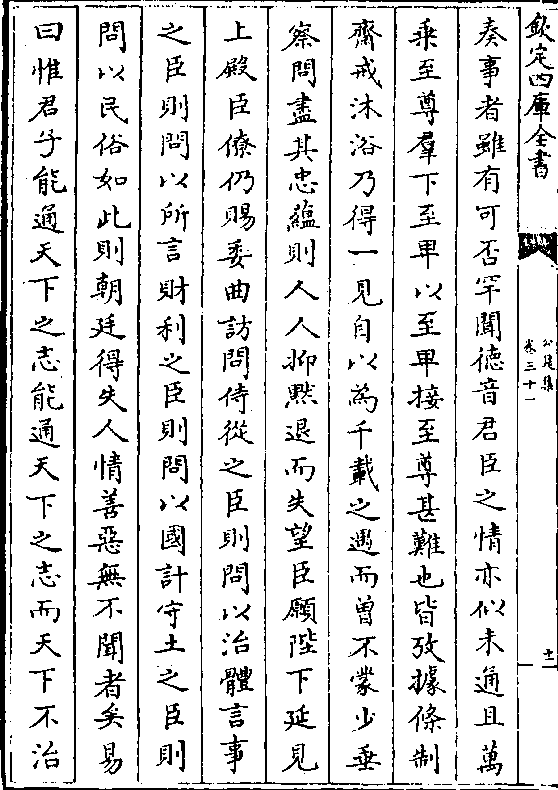 欽定四庫全書
公是集
卷三十一
十二
奏事者雖有可否罕聞德音君臣之情亦似未通且萬
乘至尊羣下至卑以至卑接至尊甚難也皆攷據條制
齋戒沐浴乃得一見自以為千載之遇而曾不蒙少垂
察問盡其忠藴則人人抑黙退而失望臣願陛下延見
上殿臣僚仍賜委曲訪問侍從之臣則問以治體言事
之臣則問以所言財利之臣則問以國計守土之臣則
問以民俗如此則朝廷得失人情善惡無不聞者矣易
曰惟君子能通天下之志能通天下之志而天下不治